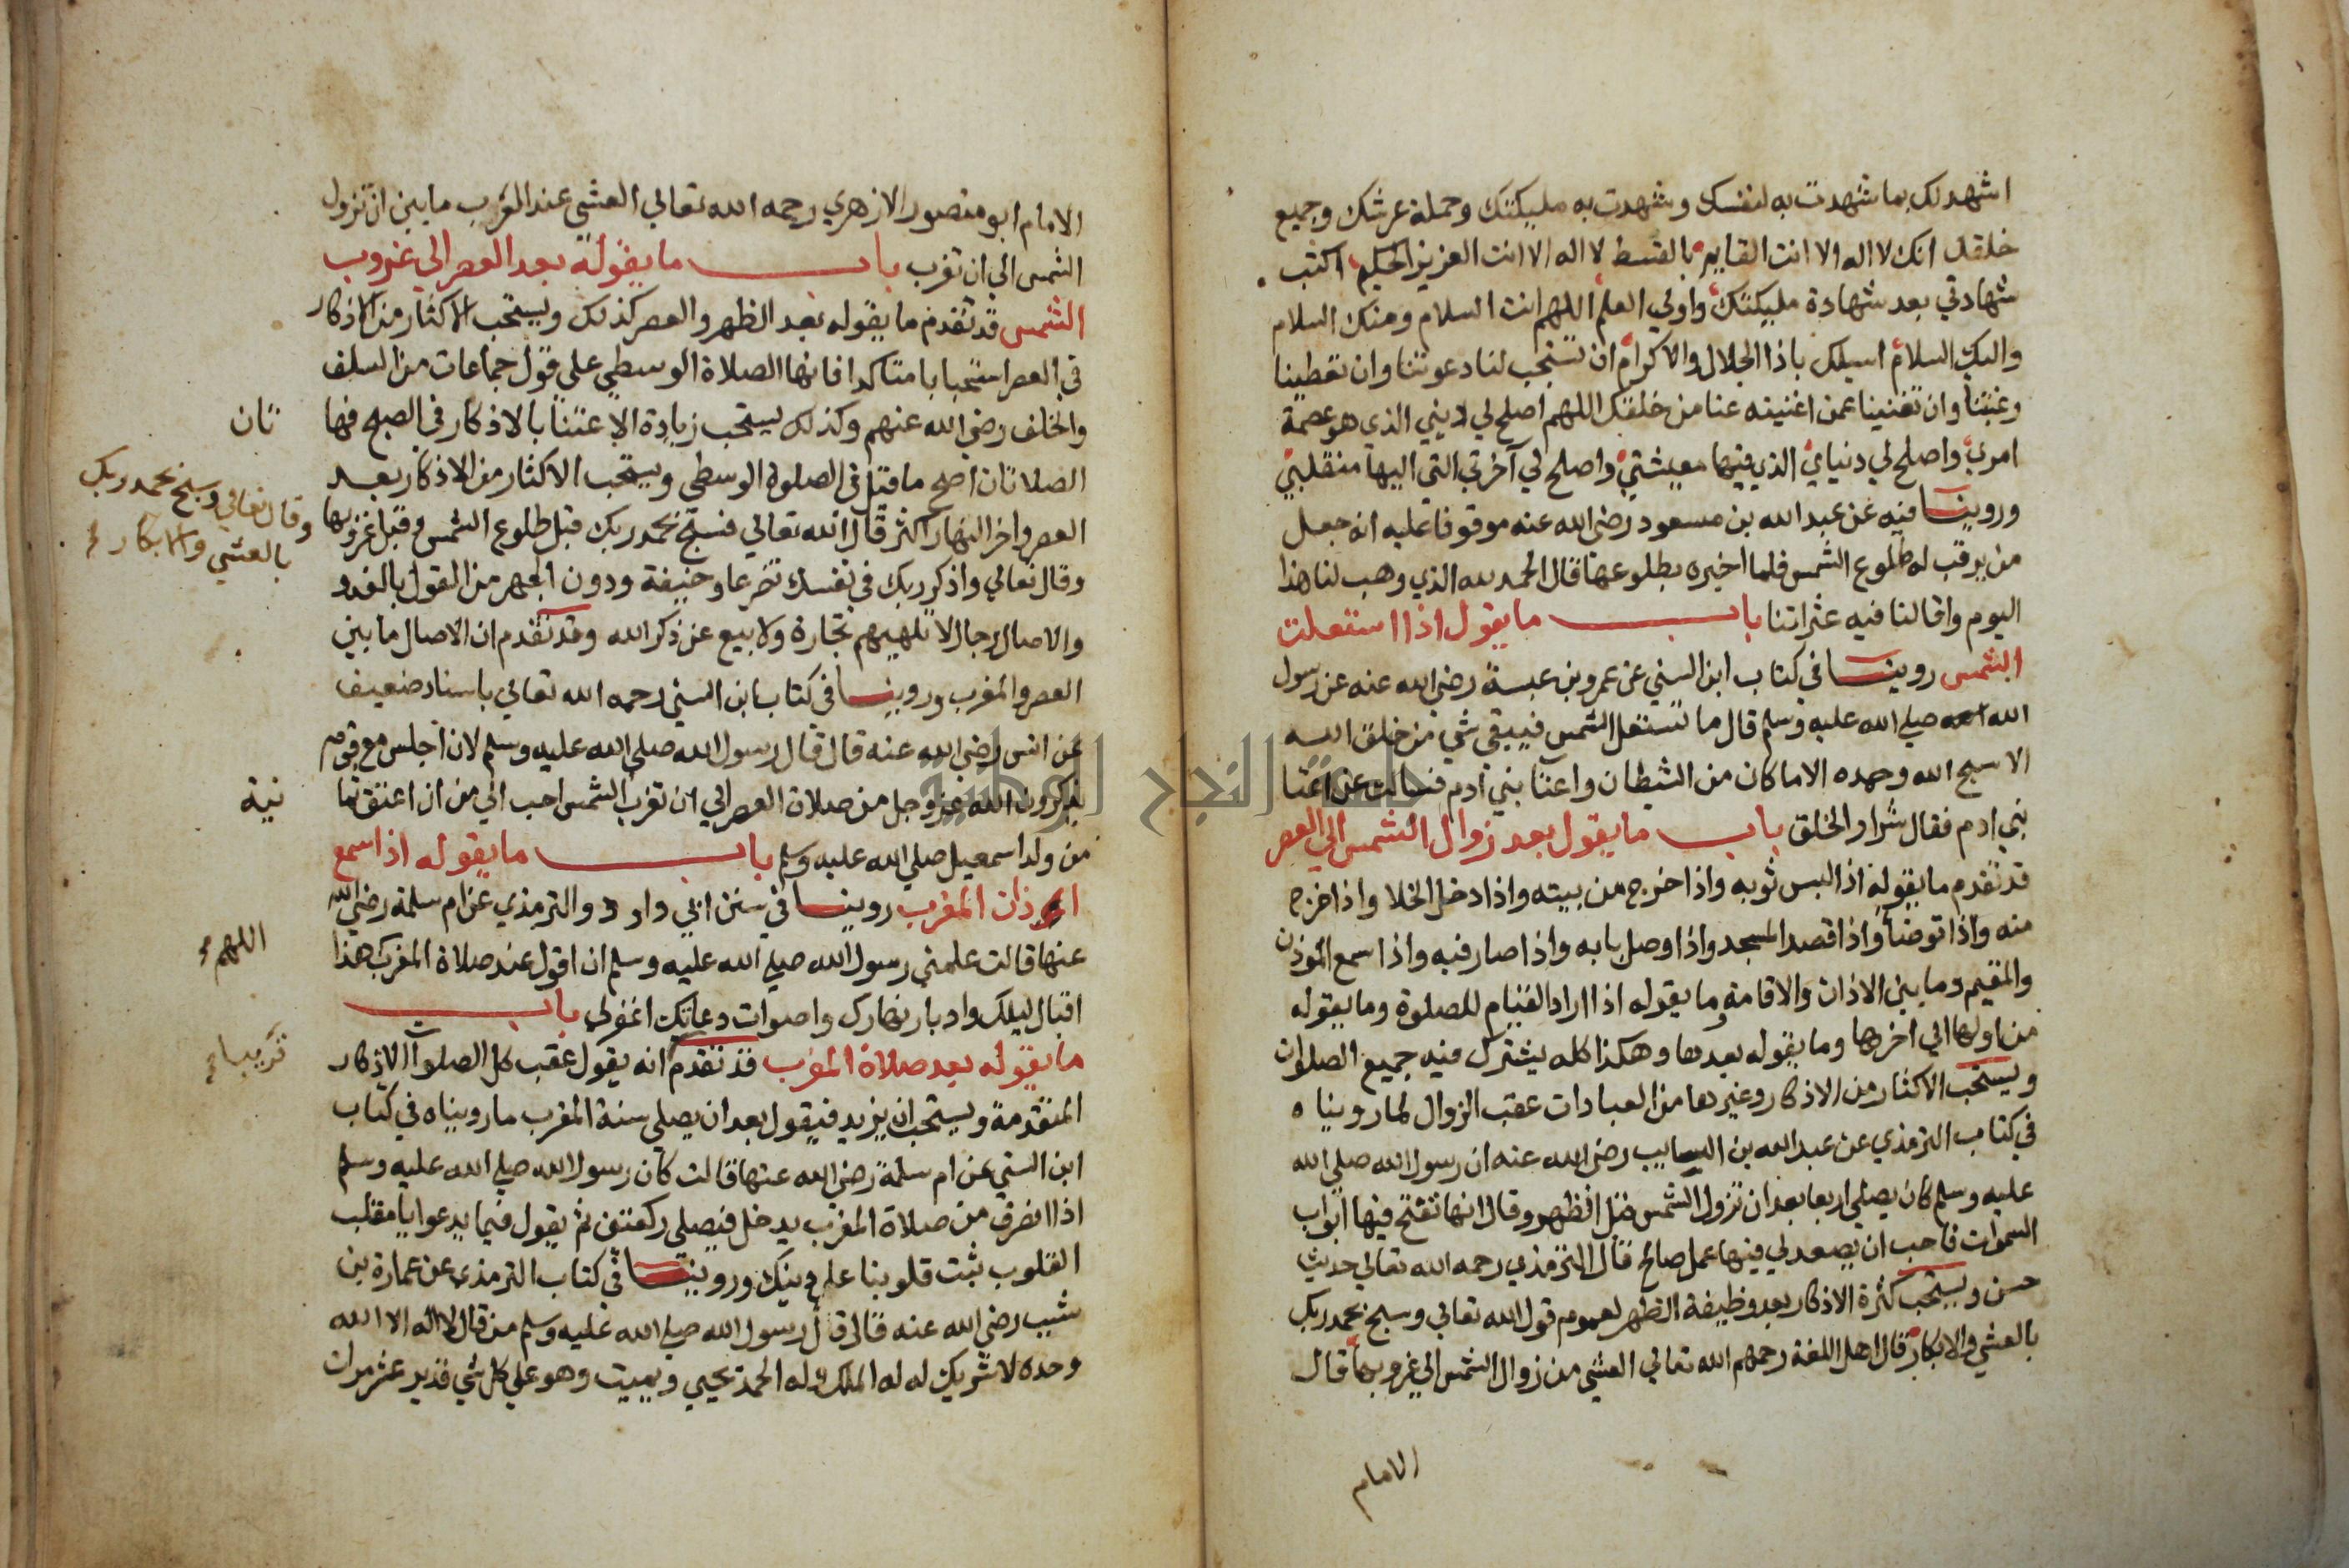 اشهد لك بما شهدت به لنفسك وشهدت به مليكتك وحملة عرشك وجميع
خلقك انك لا اله الا انت القايم بالقسط لا اله الا انت العزيز الحكيم اكتب
شهادتي بعد شهادة مليكتك واولي العلم اللهم انت السلام ومنك السلام
واليك السلام اسيلك ياذا الجلال والاكرام ان تستجب لنا دعوتنا وان تعطينا
رغبتنا وان تغنينا عمن اغنيته عنا من خلقك اللهم اصلح لي ديني الذي هو عصمة
امري واصلح لي دنياي الذي فيها معيشتي واصلح لي آخرتي التي اليها منقلبي
وروينا فيه عن عبد الله بن مسعود رضي الله عنه موقوفا عليه انه جعل
من يرقب له طلوع الشمس فلما اخبره بطلوعها قال الحمد لله الذي وهب لنا هذا
اليوم واقالنا فيه عثراتنا باب ما يقول اذا استعلت
الشمس روينا في كتاب ابن السني عن عمرو بن عبسة رضي الله عنه عن رسول
الله صلي الله عليه وسلم قال ما تستقل الشمس فيبقي شي من خلق الله
الا سبح الله وحمده الا ما كان من الشيطان واعتا بني ادم فسالت عن اعتا
بني ادم فقال شرار الخلق باب ما يقول بعد زوال الشمس الي العصر
قد تقدم ما يقوله اذا لبس ثوبه واذا خرج من بيته واذا دخل الخلا واذا خرج
منه واذا توضأ واذا قصد المسجد واذا وصل بابه واذا صار فيه واذا سمع الموذن
والمقيم وما بين الاذان والاقامة وما يقوله اذا اراد القيام للصلوة وما يقوله
من اولها الي اخرها وما يقوله بعدها وهكذا كله يشترك فيه جميع الصلوات
ويستحب الاكثار من الاذكار وغيرها من العبادات عقب الزوال لما رويناه
في كتاب الترمذي عن عبد الله بن السايب رضي الله عنه ان رسول الله صلي الله
عليه وسلم كان يصلي اربعا بعد ان تزول الشمس قبل الظهر وقال انها تفتح فيها ابواب
السموات فاحب ان يصعد لي فيها عمل صالح قال الترمذي رحمه الله تعالي حديث
حسن ويستحب كثرة الاذكار بعد وظيفة الظهر لعموم قول الله تعالي وسبح بحمد ربك
بالعشي والابكار قال اهل اللغة رحمهم الله تعالي العشي من زوال الشمس الي غروبها قال
الامام
الامام ابو منصور الازهري رحمه الله تعالي العشي عند العرب ما بين ان تزول
الشمس الي ان تغرب باب ما يقوله بعد العصر الي غروب
الشمس قد تقدم ما يقوله بعد الظهر والعصر كذلك ويستحب الاكثار من الاذكار
في العصر استحبابا متاكدا فانها الصلاة الوسطي علي قول جماعات من السلف
والخلف رضي الله عنهم وكذلك يستحب زيادة الاعتنا بالاذكار في الصبح فها
تان
الصلاتان اصح ما قيل في الصلوة الوسطي ويستحب الاكثار من الاذكار بعد
العصر واخر النهار اكثر قال الله تعالي فسبح بحمد ربك قبل طلوع الشمس وقبل غروبها
وقال تعالي وسبح بحمد ربك
بالعشي والابكار
وقال تعالي واذكر ربك في نفسك تضرعا وخيفة ودون الجهر من القول بالغدو
والاصال رجال لا تلهيهم تجارة ولا بيع عن ذكر الله وقد تقدم ان الاصال ما بين
العصر والمغرب وروينا في كتاب ابن السني رحمه الله تعالي باسناد ضعيف
عن انس رضي الله عنه قال قال رسول الله صلي الله عليه وسلم لان اجلس مع قوم
يذكرون الله عز وجل من صلاة العصر الي ان تغرب الشمس احب الي من ان اعتق ثما
نية
من ولد اسمعيل صلي الله عليه وسلم باب ما يقوله اذا سمع
اذان المغرب روينا في سنن ابي داود والترمذي عن ام سلمة رضي الله
عنها قالت علمني رسول الله صلي الله عليه وسلم ان اقول عند صلاة المغرب هذا
اللهم
اقبال ليلك وادبار نهارك واصوات دعاتك اغفر لي باب
ما يقوله بعد صلاة المغرب قد تقدم انه يقول عقب كل الصلوات الاذكار
قريبا
المتقدمة ويستحب ان يزيد فيقول بعد ان يصلي سنة المغرب ما رويناه في كتاب
ابن السني عن ام سلمة رضي الله عنها قالت كان رسول الله صلي الله عليه وسلم
اذا انصرف من صلاة المغرب يدخل فيصلي ركعتين ثم يقول فيما يدعو يا مقلب
القلوب ثبت قلوبنا علي دينك وروينا في كتاب الترمذي عن عمارة بن
شبيب رضي الله عنه قال قال رسول الله صلي الله عليه وسلم من قال لا اله الا الله
وحده لا شريك له له الملك وله الحمد يحيي ويميت وهو علي كل شي قدير عشر مرات
جامعة النجاح الوطنية